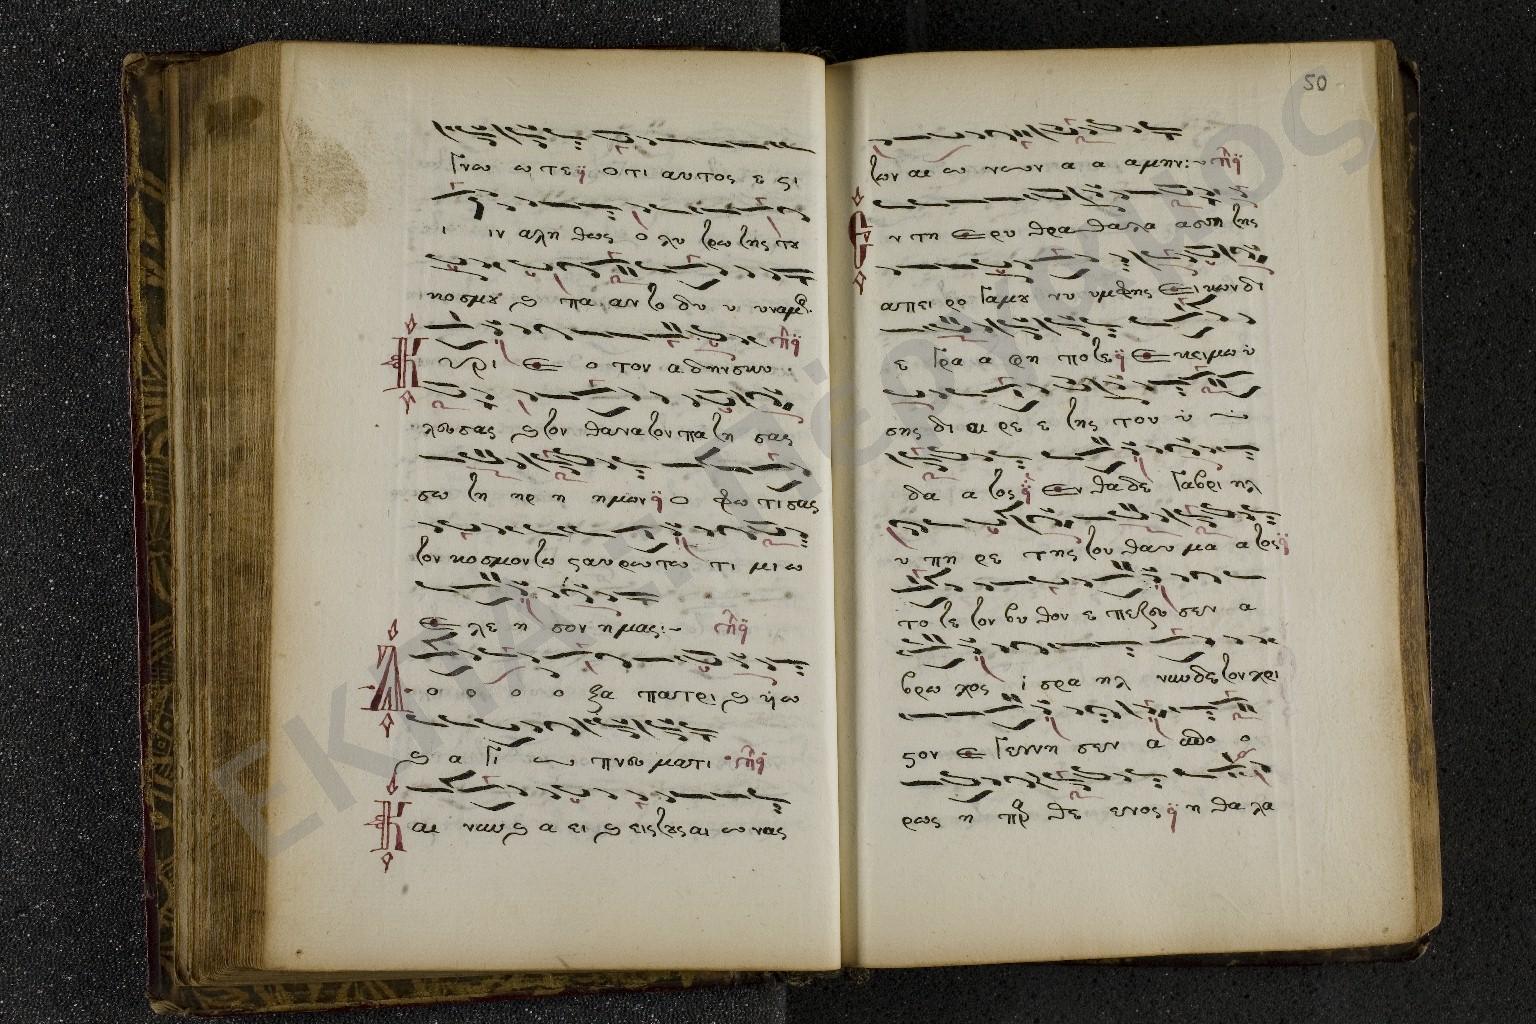 Γνω ω τε οτι αυτος ε στι
ι ιν αλη θως ο λυ τρω της του
κοσμου και πα αν το δυ υ υναμος
Κυρι ε ο τον αδην σκυ
λευσας και τον θανατον πα τη σας
σω τη ηρ η ημων ο φω τι σας
τον κοσμον τω σταυρω τω τι μι ω
ε λε η σον ημας:~
Δ ο ο ο ο ξα πατρι και υιω
και α γι ω πνευ ματι
Και νυν και α ει και εις τους αι ω νας
50
των αι ω νων α α αμην:~
Ε ν τη ε ρυ θρα θαλα ασση της
απει ρο γαμου νυ υμφης ει κων δι
ε γρα α φη ποτε ε κει μω ϋ
σης δι αι ρε ε της του ϋ
δα α τος εν θαδε Γαβρι ηλ
υ πη ρε της του θαυ μα α τος
το τε τον βυ θον ε πεζευ σεν α
βρω χος ι σρα ηλ νυν δε τον χρι
στον ε γεννη σεν α σπο ο
ρως η παρ θε ενος η θα λα
ΕΚΠΑ